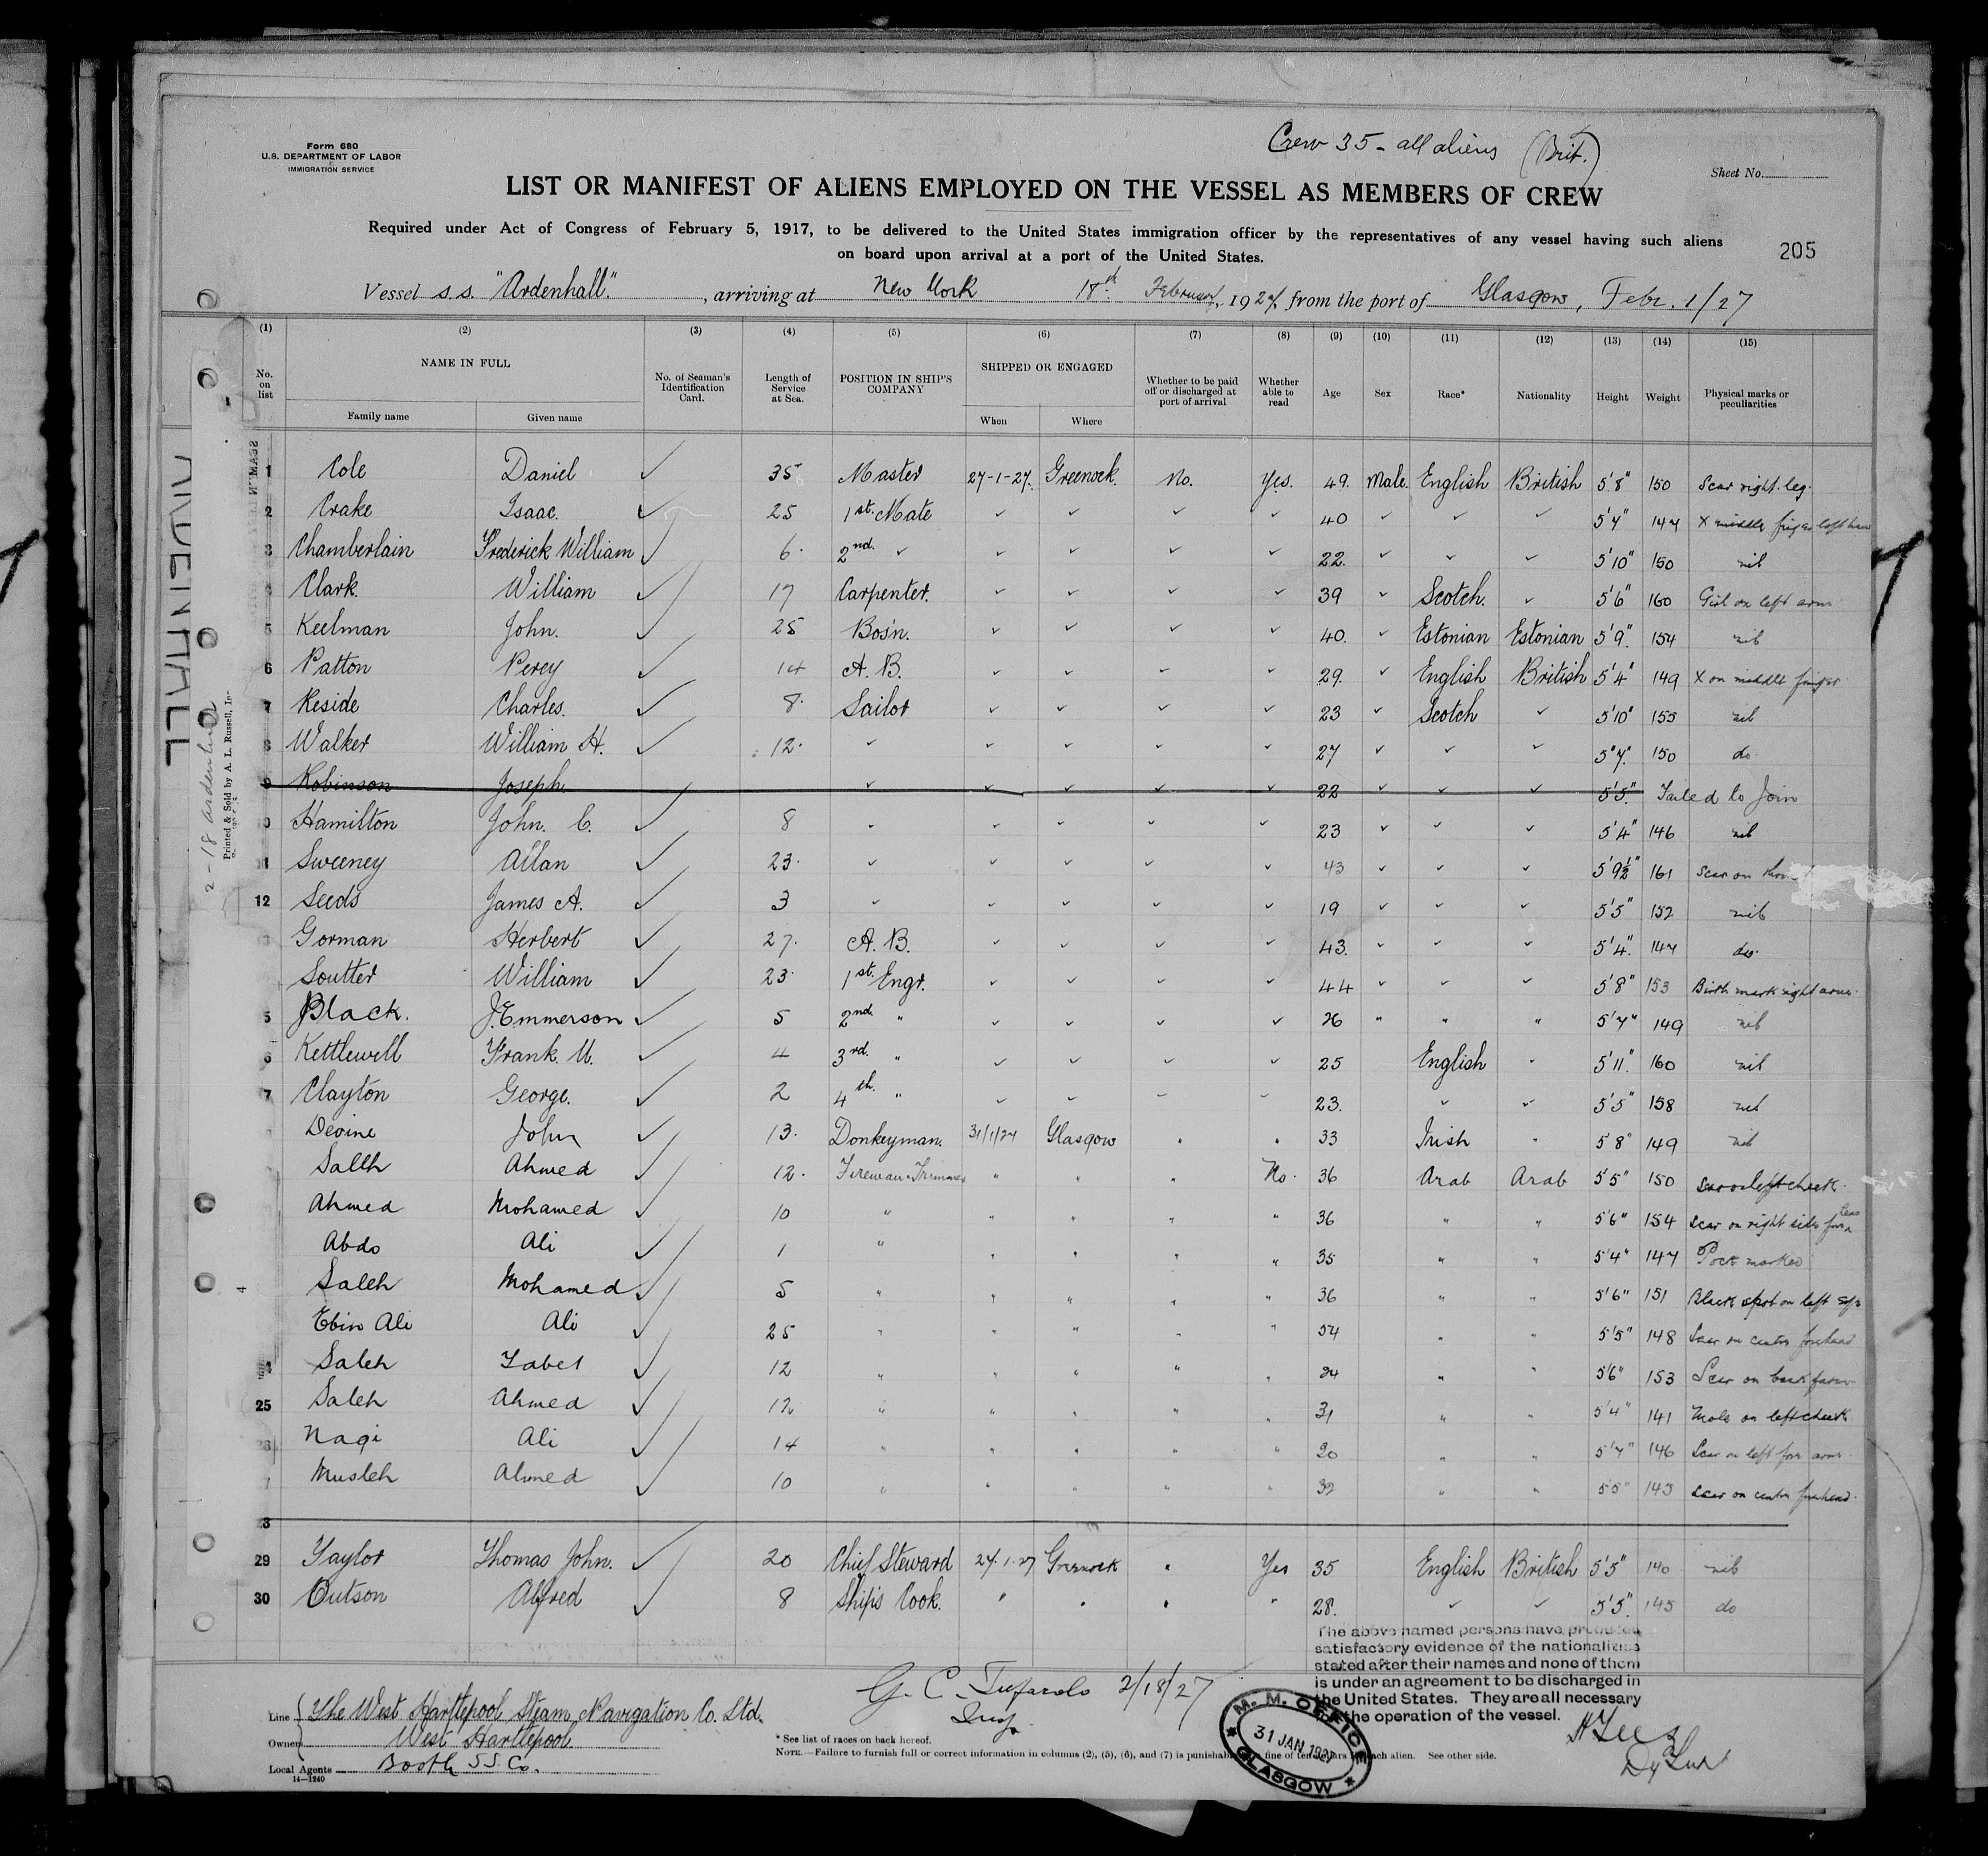 Crew 35 - all aliens (Brit.)
Form 680
U.S. DEPARTMENT OF LABOR
IMMIGRATION SERVICE
Sheet No.
LIST OR MANIFEST OF ALIENS EMPLOYED ON THE VESSEL AS MEMBERS OF CREW
Required under Act of Congress of February 5, 1917, to be delivered to the United States immigration officer by the representatives of any vessel having such aliens
on board upon arrival at a port of the United States.
205
Vessel s.s. "Ardenhall", arriving at New York 18th February, 1927, from the port of Glasgow, Febr. 1/27
(1) (2) (3) (4) (5) (6) (7) (8) (9) (10) (11) (12) (13) (14) (15)
No. on list NAME IN FULL Family name Given name No. of Seaman's Identification Card. Length of Service at Sea. POSITION IN SHIP'S COMPANY SHIPPED OR ENGAGED When Where Whether to be paid off or discharged at port of arrival Whether able to read Age Sex Race* Nationality Height Weight Physical marks or peculiarities
1 Cole Daniel ✓ 35 Master 27-1-27. Greenock. No. Yes. 49. Male. English British 5'8" 150 Scar right leg.
2 Crake Isaac. ✓ 25 1st. Mate ✓ ✓ ✓ ✓ 40 ✓ ✓ ✓ 5'7" 147 X middle finger left hand
3 Chamberlain Frederick William ✓ 6. 2nd. ✓ ✓ ✓ ✓ ✓ 22. ✓ ✓ ✓ 5'10" 150 nil
4 Clark. William ✓ 17 Carpenter. ✓ ✓ ✓ ✓ 39 ✓ Scotch. ✓ 5'6" 160 Girl on left arm
5 Keelman John. ✓ 25 Bos'n. ✓ ✓ ✓ ✓ 40. ✓ Estonian Estonian 5'9" 154 nil
6 Patton Percy ✓ 14 A. B. ✓ ✓ ✓ ✓ 29. ✓ English British 5'4" 149 X on middle finger
7 Reside Charles. ✓ 8. Sailor ✓ ✓ ✓ ✓ 23 ✓ Scotch ✓ 5'10" 155 nil
8 Walker William H. ✓ 12. ✓ ✓ ✓ ✓ ✓ 27 ✓ ✓ ✓ 5'7" 150 do
9 Robinson Joseph. ✓ ✓ ✓ ✓ ✓ 22 ✓ ✓ ✓ 5'5" Failed to Join
0 Hamilton John. C. ✓ 8 ✓ ✓ ✓ ✓ ✓ 23 ✓ ✓ ✓ 5'4" 146 nil
11 Sweeney Allan ✓ 23. ✓ ✓ ✓ ✓ ✓ 43 ✓ ✓ ✓ 5'9½" 161 Scar on
12 Seeds James A. ✓ 3 ✓ ✓ ✓ ✓ ✓ 19 ✓ ✓ ✓ 5'5" 152 nil
Gorman Herbert ✓ 27. A. B. ✓ ✓ ✓ ✓ 43. ✓ ✓ ✓ 5'4" 147 do.
Soutter William ✓ 23. 1st. Engr. ✓ ✓ ✓ ✓ 44 ✓ ✓ ✓ 5'8" 153 Birth mark right arm.
5 Black. J. Emmerson ✓ 5 2nd. " ✓ ✓ ✓ ✓ 26 " " " 5'7" 149 nil
6 Kettlewell Frank. U. ✓ 4 3rd. " ✓ ✓ ✓ ✓ 25 English " 5'11" 160 nil
7 Clayton George. ✓ 2 4th. " ✓ ✓ ✓ ✓ 23. ✓ ✓ 5'5" 158 nil
Devine John ✓ 13. Donkeyman. 31/1/27 Glasgow " " 33 Irish " 5'8" 149 nil
Saleh Ahmed ✓ 12. Fireman-Trimmer " " " No. 36 Arab Arab 5'5" 150 scar on left cheek.
Ahmed Mohamed ✓ 10 " " " " " 36 " " 5'6" 154 Scar on right side
Abdo Ali ✓ 1 " " " " " 35 " " 5'4" 147 Pock marked
Saleh Mohamed ✓ 5 " " " " " 36 " " 5'6" 151 Black spot on left eye
Ebin Ali Ali ✓ 25 " " " " " 54 " " 5'5" 148 Scar on centre forehead
Saleh Zabet ✓ 12 " " " " " 24 " " 5'6" 153 Scar on
25 Saleh Ahmed ✓ 12. " " " " " 31 " " 5'4" 141 Mole on left cheek
26 Nagi Ali ✓ 14 " " " " " 30 " " 5'7" 146 Scar on left fore arm.
7 Musleh Ahmed ✓ 10 " " " " " 32 " " 5'5" 145 Scar on centre forehead.
28
29 Taylor Thomas John. ✓ 20 Chief Steward 27.1.27 Greenock " Yes 35 English British 5'5" 140 nil
30 Outson Alfred ✓ 8 Ship's Cook. " " " " 28. ✓ ✓ 5'5" 145 do
The above named persons have produced
satisfactory evidence of the nationalities
stated after their names and none of them
is under an agreement to be discharged in
the United States. They are all necessary
the operation of the vessel.
G. C. Tufarolo 2/18/27
Insp.
Line The West Hartlepool Steam Navigation Co. Ltd.
Owner West Hartlepool
Local Agents Booth S.S. Co.
14—1240
* See list of races on back hereof.
NOTE.—Failure to furnish full or correct information in columns (2), (5), (6), and (7) is punishable fine of ten dollars each alien. See other side.
M. M. OFFICE
31 JAN 1927
GLASGOW
ARDENHALL
2-18 ardenhall
Printed & Sold by A. L. Russell, Inc.
4